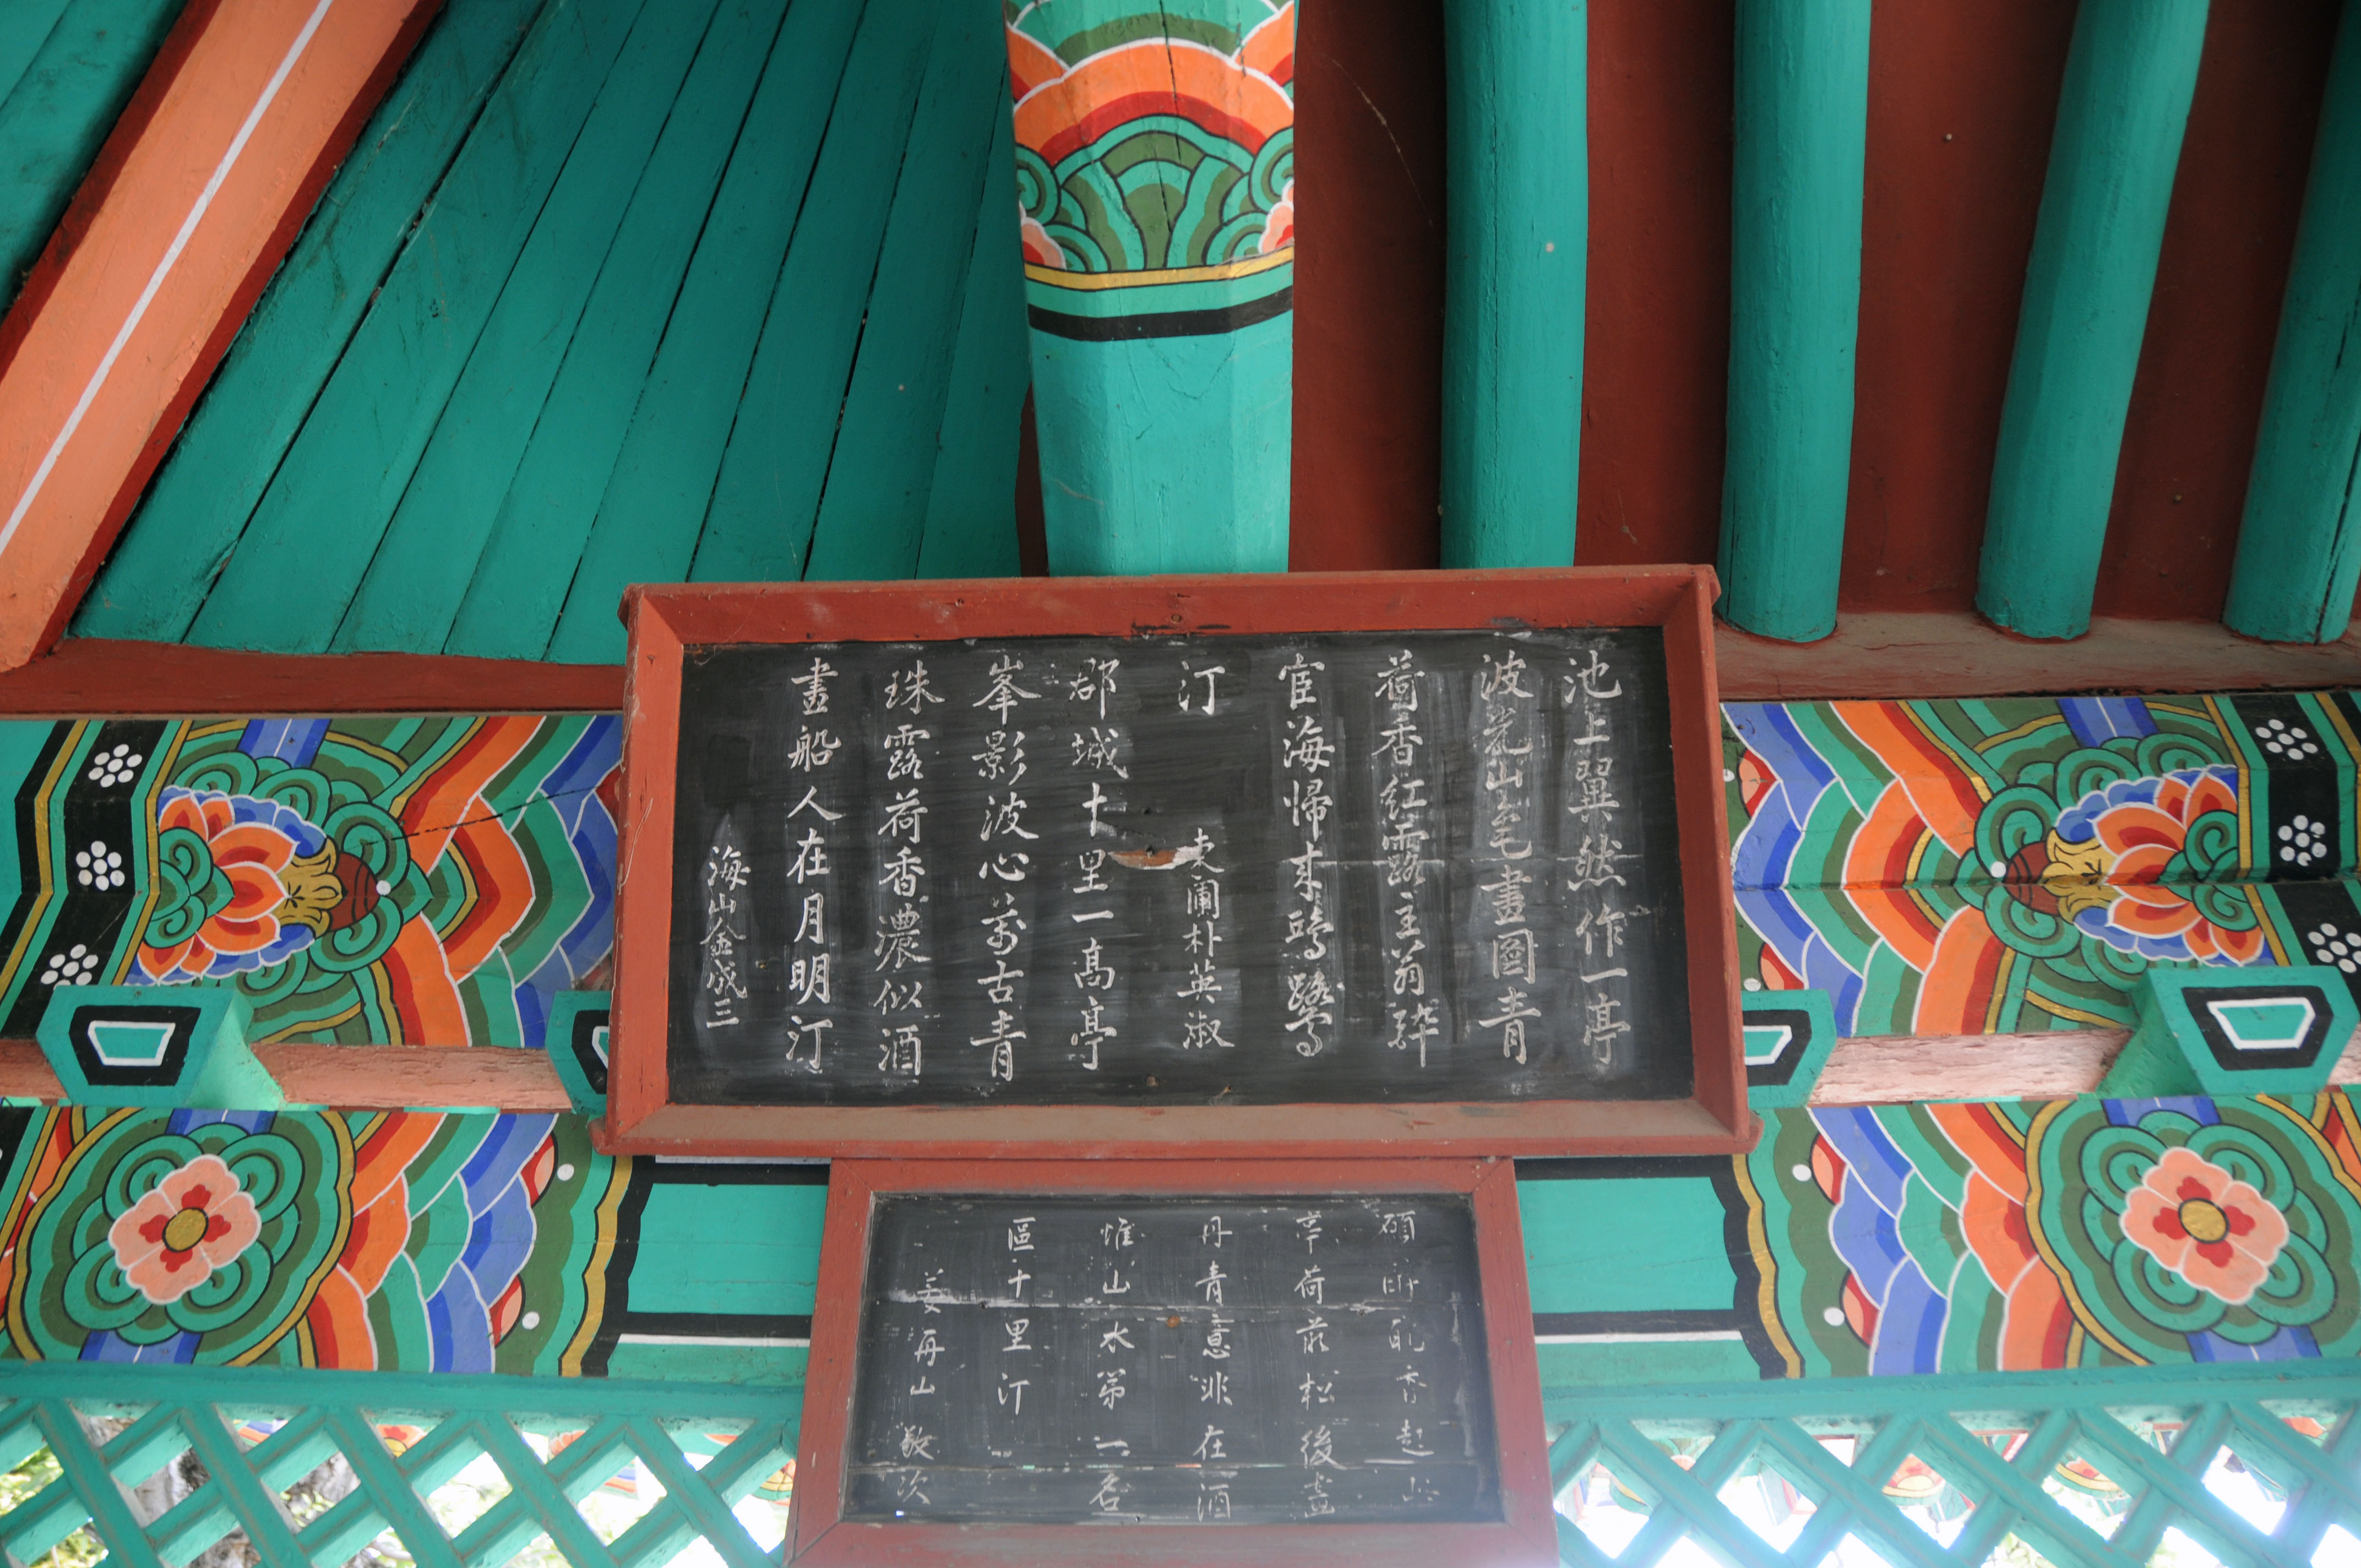 池上翼然作一亭
波光山色畫圖青
荷香紅露主翁醉
宦海帰来鷗鷺
汀 東蘭朴英淑
郡城十里一高亭
峯影波心萬古青
珠露荷香濃似酒
畫船人在月明汀
海山金成三
碩 香起
亭荷 松後
丹青意非在酒
惟山水第一名
區十里汀
姜再山敬次